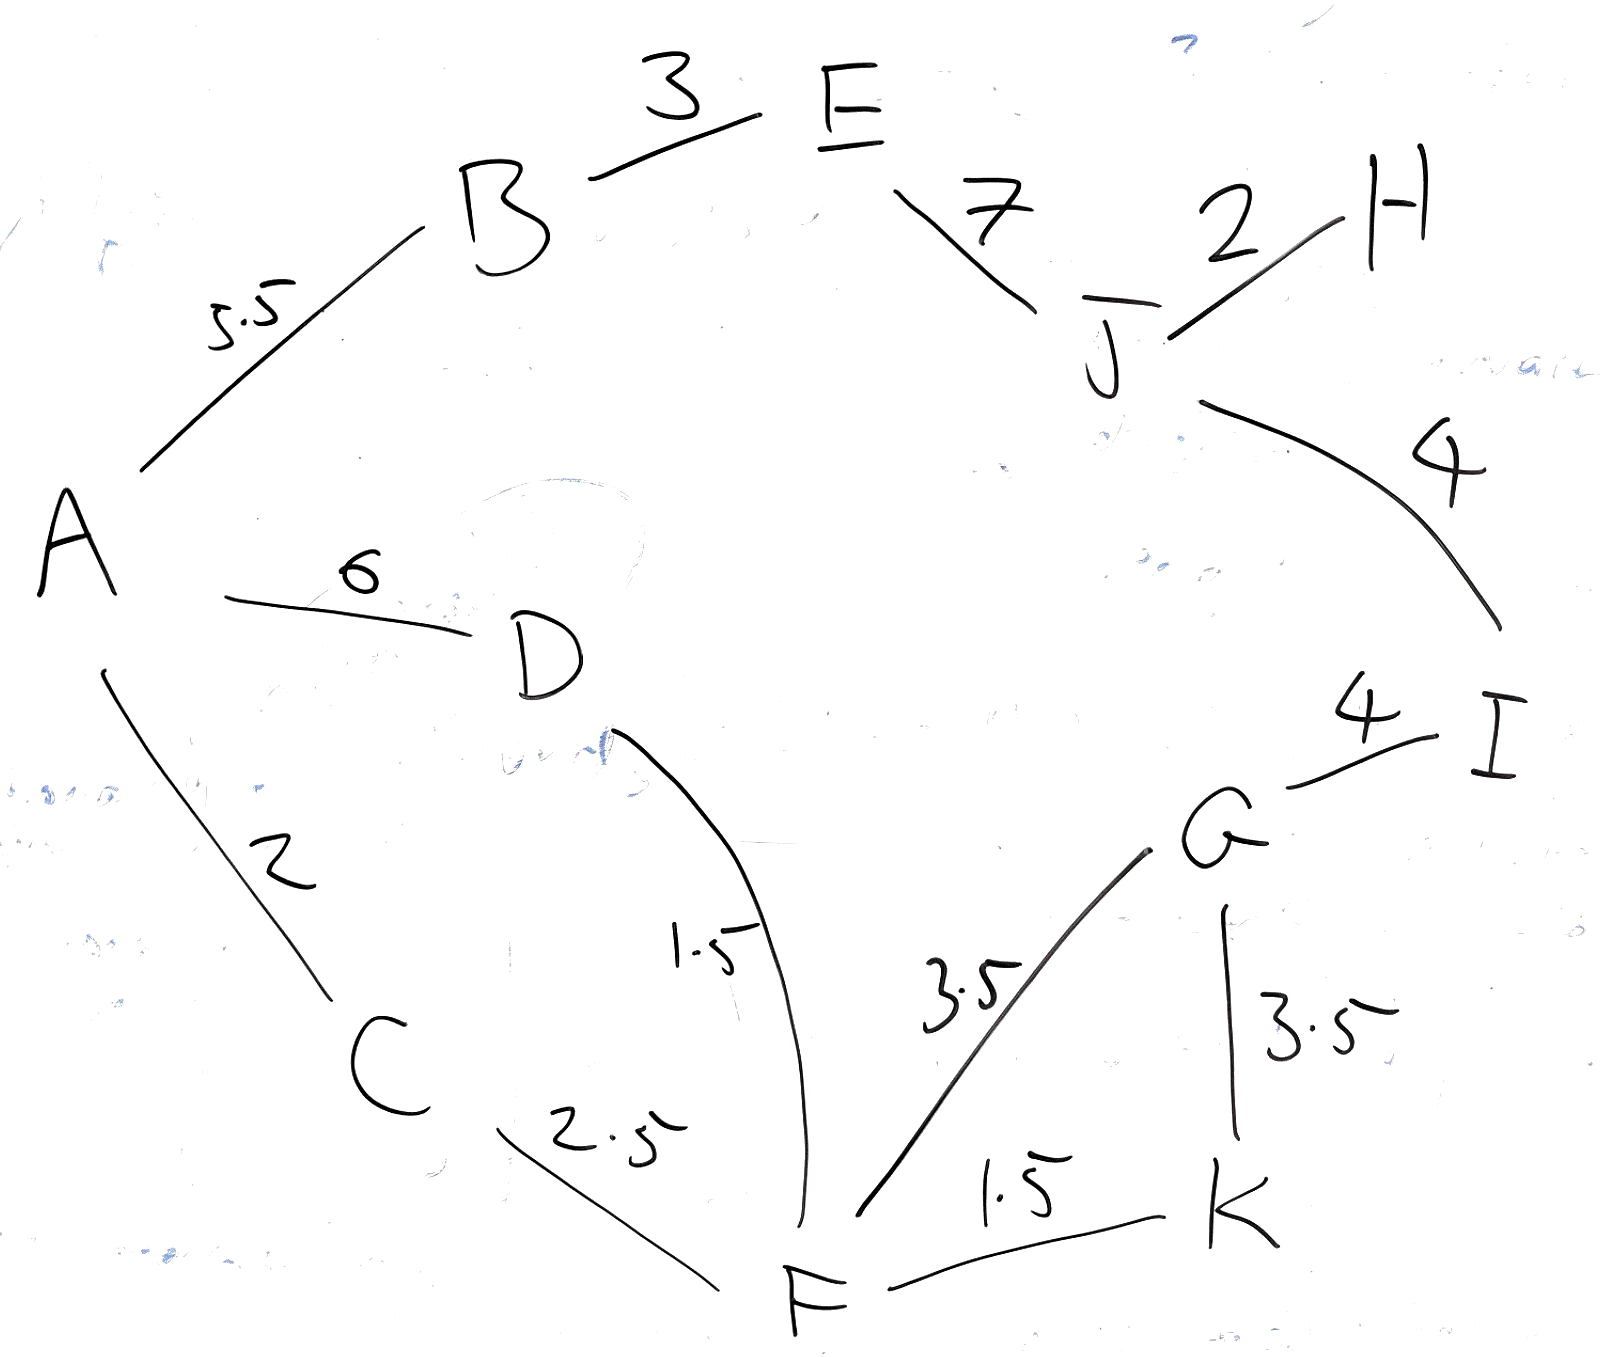 3
E
B
7
2
H
5.5
J
4
A
6
D
4
I
2
G
1.5
3.5
3.5
C
2.5
1.5
K
F